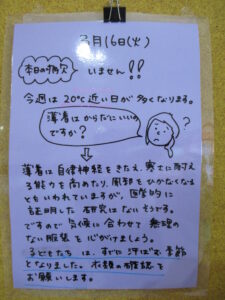 3月16日(火)
本日の病欠 いません!!
今週は20℃近い日が多くなります。
薄着はからだにいいの
ですか?
?
薄着は自律神経をきたえ、寒さに耐え
る能力を高めたり、風邪をひかなくなる
ともいわれていますが、医学的に
証明した研究はないそうです。
ですので気候に合わせて無理の
ない服装を心がけましょう。
子どもたちは、すでに汗ばむ季節
となりました。衣類の確認を
お願いします。